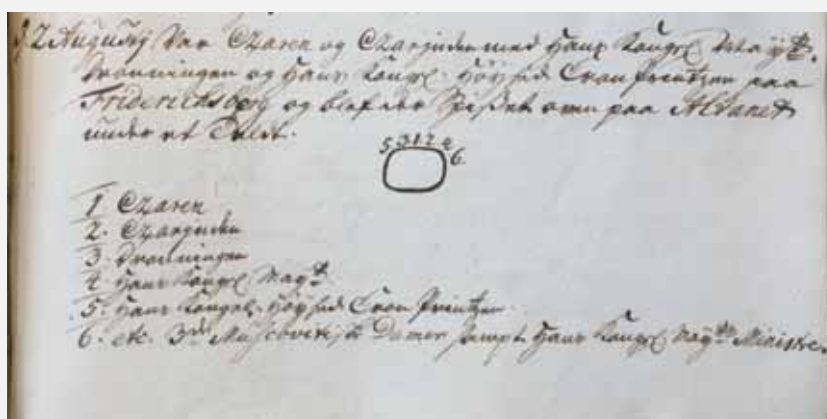 d. 2 Augustj Var Czaren og Czarinden med Hans Kongel. Mayt.
Dronningen og Hans Kongel. Höyhed Cron Printzen paa
Friderichsberg og blef der Spiset oven paa Altanet
under et Telt.
5 3 1 2 4 6.
1 Czaren
2. Czarinden
3 Dronningen
4 Hans Kongel Mayt.
5. Hans Kongel. Höyhed Cron Printzen.
6. etc. 3de Muscovitiske Damer sampt Hans Kongel Mayts Ministre.